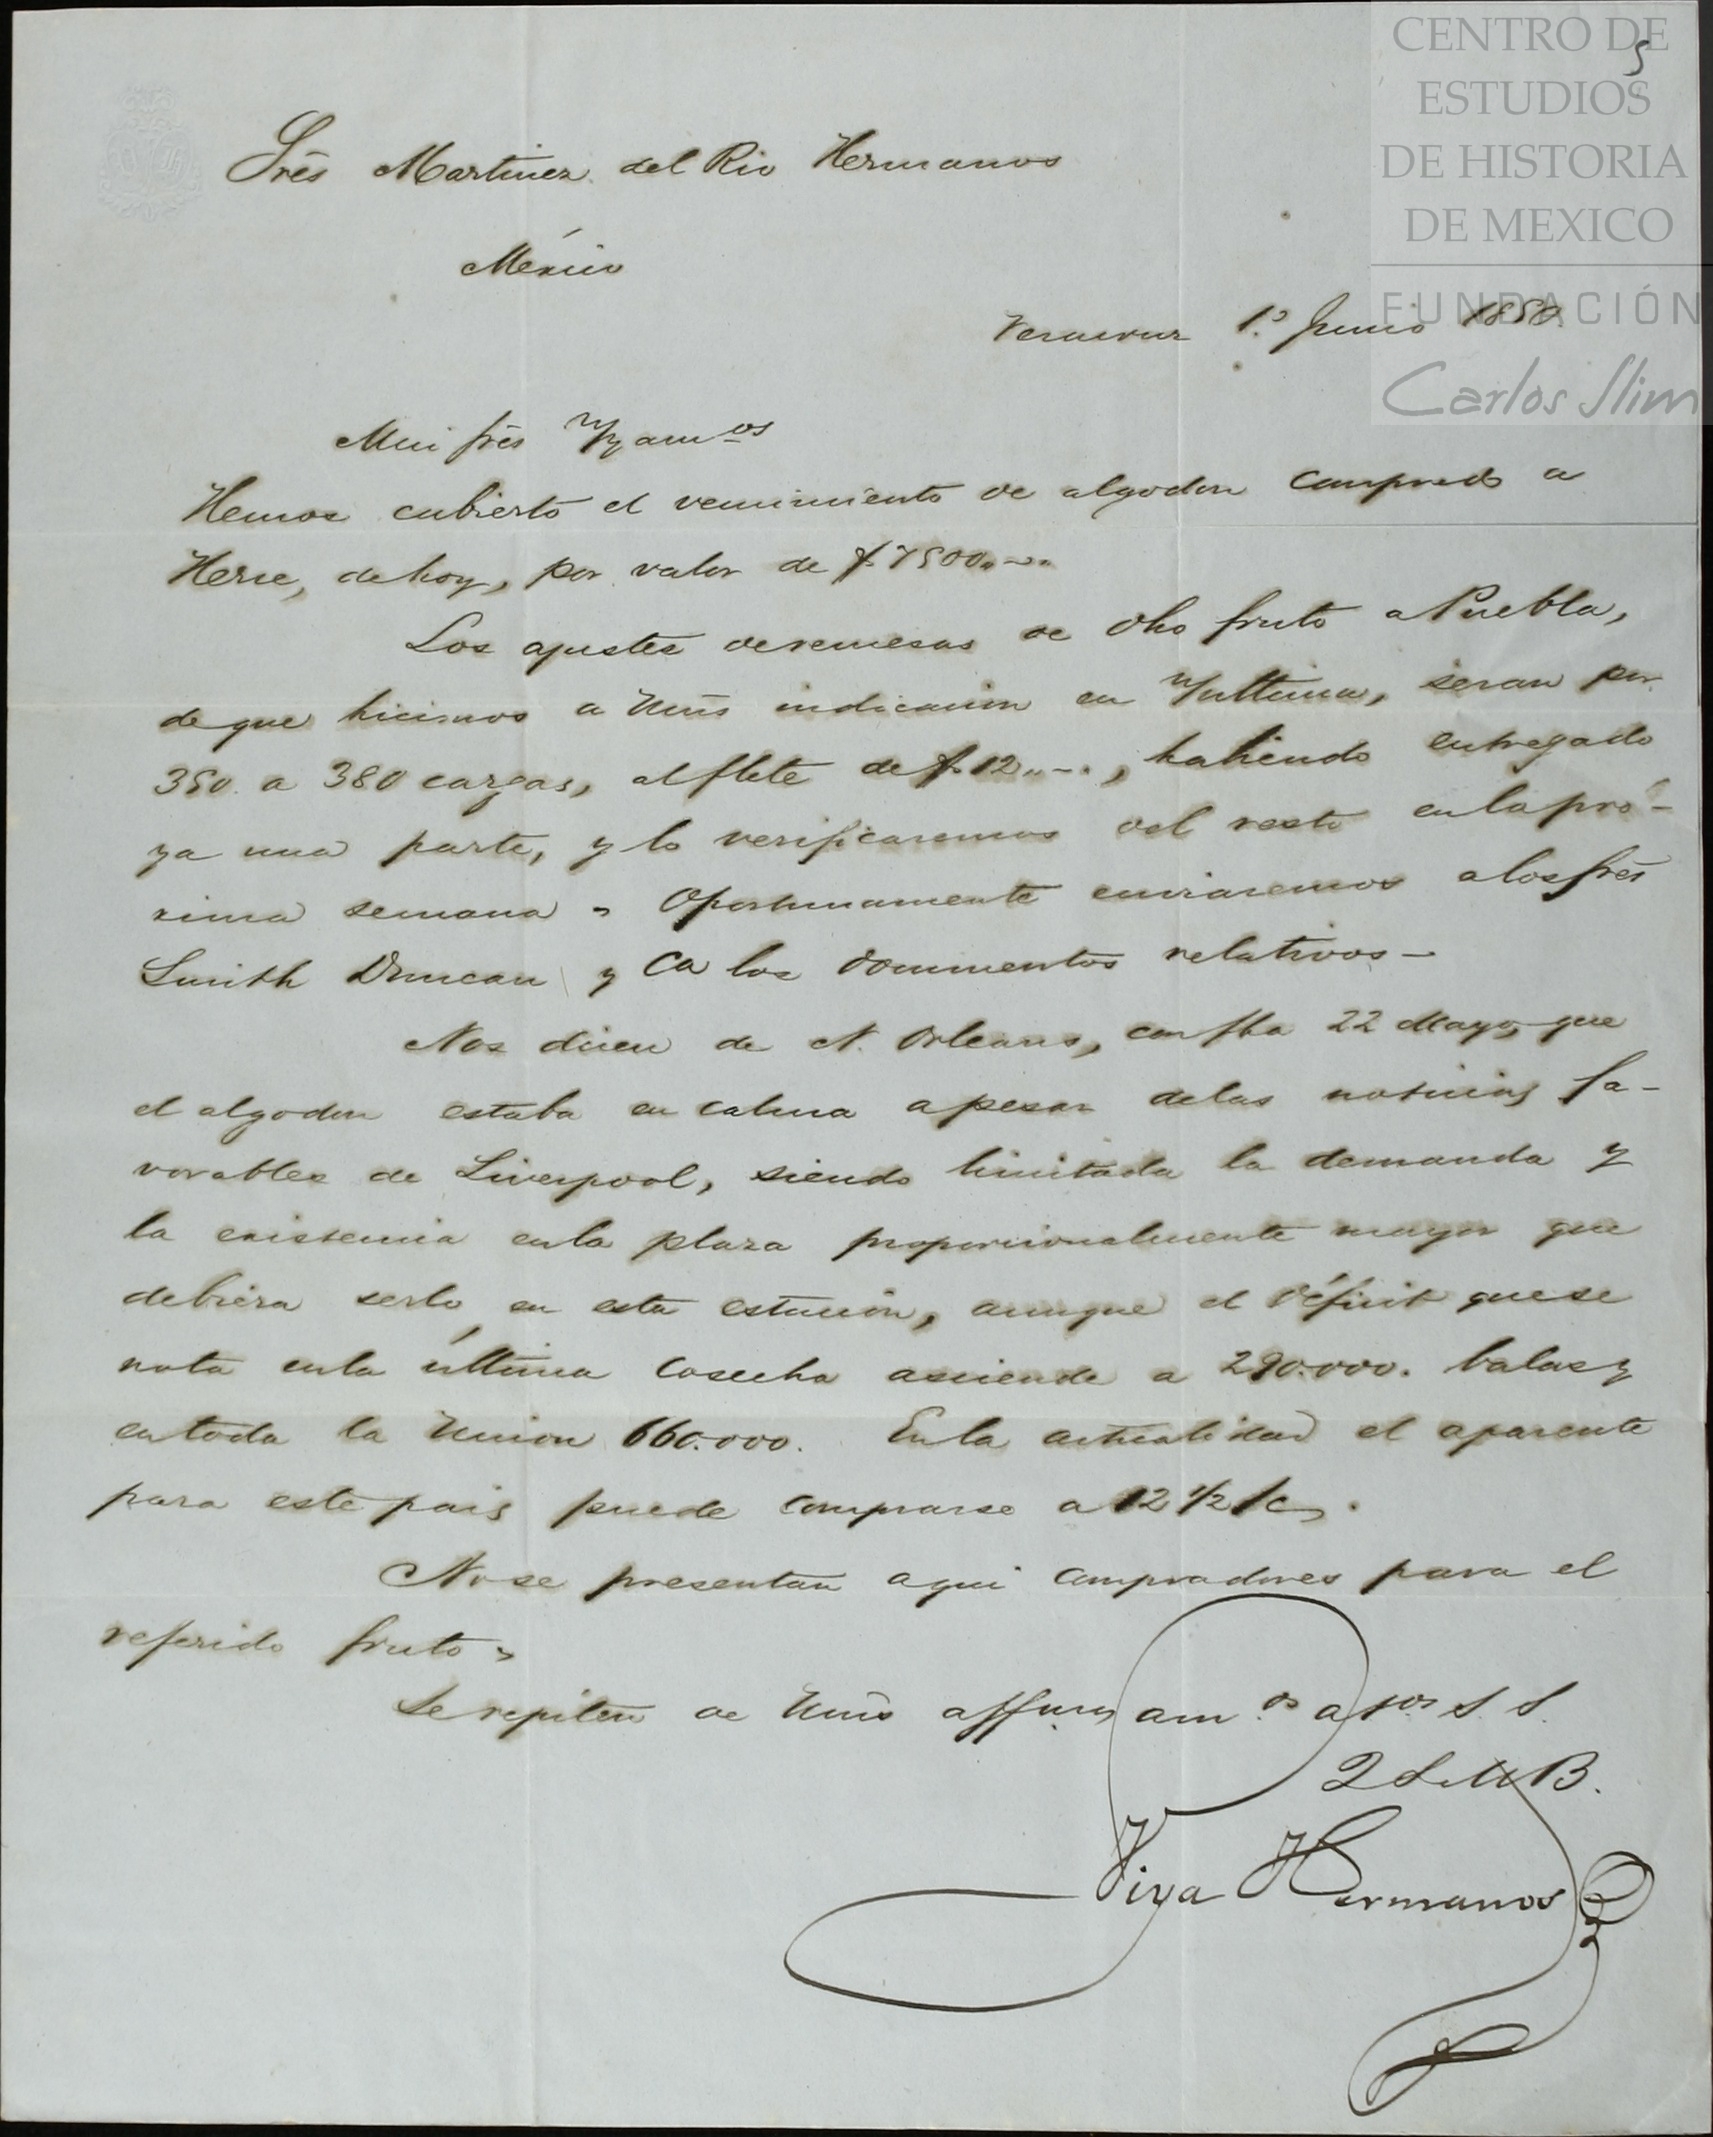 CENTRO DE
ESTUDIOS
DE HISTORIA
DE MEXICO
FUNDACIÓN
Carlos Slim
5
Srẽs Martinez del Rio Hermanos
México
Veracruz 1.º Junio 1850.
Mui srẽs ntrs am.os
Hemos cubierto el vencimiento de algodon comprado a
de hoy, por valor de $ 7500..-..
Los ajustes de remesas de dho fruto a Puebla,
de que hicimos a Ums indicacion en ntr ultima, seran por
350 a 380 cargas, al flete de $ 12..-.., habiendo entregado
ya una parte, y lo verificaremos del resto en la pró-
xima semana. Oportunamente enviaremos a los srẽs
Smith Duncan y Ca los documentos relativos –
Nos dicen de N. Orleans, con fha 22 Mayo, que
el algodon estaba en calma apesar delas noticias fa-
vorables de Liverpool, siendo limitada la demanda y
la existencia enla plaza proporcionalmente mayor que
debiera serlo en esta estacion, aunque el déficit que se
nota enla última cosecha asciende a 290.000. balas y
en toda la Union 660.000. Enla actualidad el aparente
para este pais puede comprarse a 12 1/2 /c.
No se presentan aqui compradores para el
referido fruto.
Se repiten de Ums affmos am.os a S. S.
Q S. M B.
Viya Hermanos